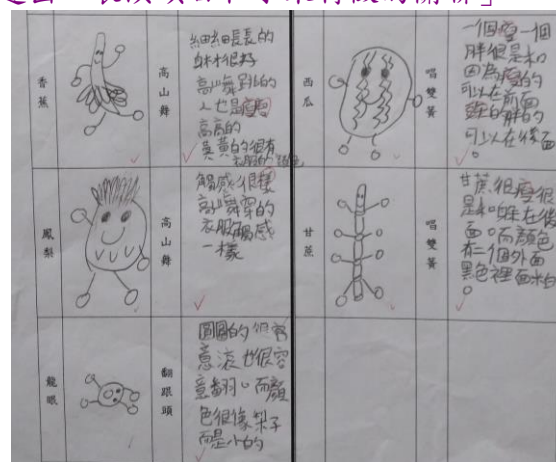 香蕉
高山舞
細細長長的
身材很好
高山舞跳的
人也是瘦瘦
高高的
黃黃的很有
衣服的
西瓜
唱雙簧
一個瘦一個
胖很是和
因為瘦的
可以在前面
的胖的
可以在後面
。
鳳梨
高山舞
觸感很樣
高山舞穿的
衣服觸感
一樣
甘蔗
唱雙簧
甘蔗很瘦很
是和在後
面。而顏色
有二個外面
黑色裡面米白
。
龍眼
翻跟頭
圓圓的很容
意滾也很容
意翻。而顏
色很像梨子
而是小的